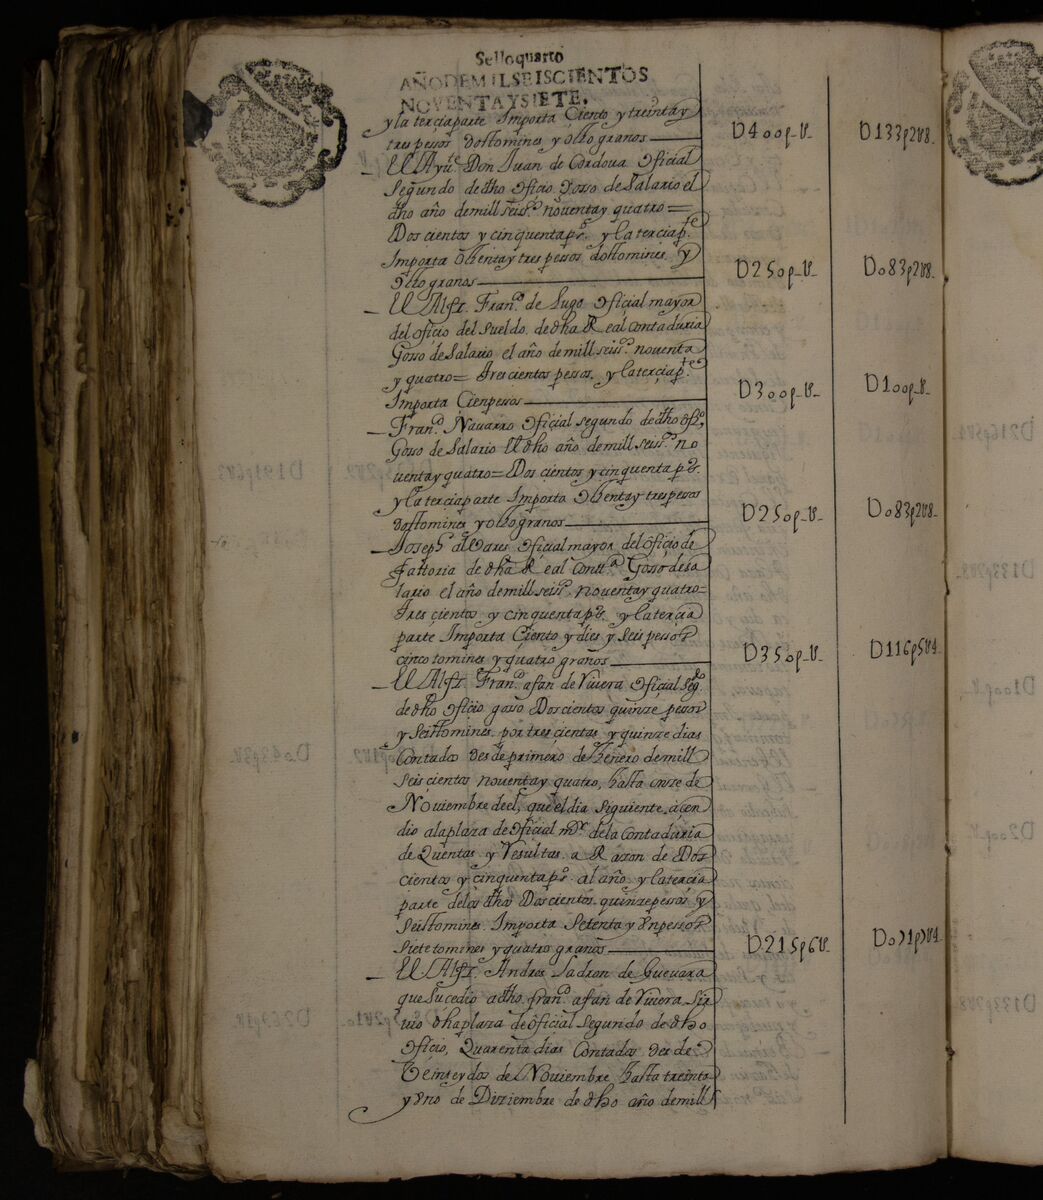 Sello quarto
AÑO DE MIL SEISCIENTOS
NOVENTA Y SIETE.
y la tercia parte Importa Ciento y treinta y
tres pessos dos tomines y ocho granos D400p-U- D133p2U8-
El Ayu.te Don Juan de Cordova Oficial
Segundo de dho Oficio Gosso de Salario el
dho año de mill seis.s noventa y quatro =
Dos cientos y cinquenta p.s y la tercia p.te
Importa Ochenta y tres pessos dos tomines y
Ocho granos D250p-U- D083p2U8-
El Alfz. Fran.co de Lugo Oficial mayor
del oficio del sueldo de dha Real contaduria
Gosso de Salario el año de mill seis.s noventa
y quatro = Tres cientos pessos y la tercia p.te
Importa Cien pessos D300p-U- D100p-U-
Fran.co Navarro Oficial segundo de dho ofi.o
Gosso de Salario El dho año de mill seis.s no
venta y quatro = Dos cientos y cinquenta p.s
y la tercia parte Importa Ochenta y tres pesos
dos tomines y ocho granos D250p-U- D083p2U8-
Joseph alvares Oficial mayor del Oficio de
Fattoria de dha Real Contt.a Gosso de sa
lario el año de mill seis.s noventa y quatro =
Tres cientos y cinquenta p.s y la tercia
parte Importa Ciento y dies y seis pessos
cinco tomines y quatro granos D350p-U- D116p5U4
El Alfz. Fran.co afan de Rivera Oficial seg.do
de dho Oficio gosso Doscientos quinze pessos
y Seis tomines por tres cientos y quinze dias
Contados desde primero de Henero de mill
seis cientos noventa y quatro, hasta onze de
Noviembre de el, que el dia siguiente acen
dio a la plaza de Oficial m.or de la Contaduria
de Quentas y Resultas a Razon de Dos
cientos y cinquenta p.s al año y la tercia
parte de los dhos Doscientos quinze pesos y
Seis tomines Importa Setenta y Un pessos
siete tomines y quatro granos D215p6U- D071p7U4
El Alfz. Andres Ladron de Guevara
que Sucedio a dho Fran.co afan de Rivera Sir
vio dha plaza de Oficial segundo de dho
Oficio, Quarenta dias Contados desde
Veinte y dos de Noviembre hasta treinta
y Uno de Diziembre de dho año de mill